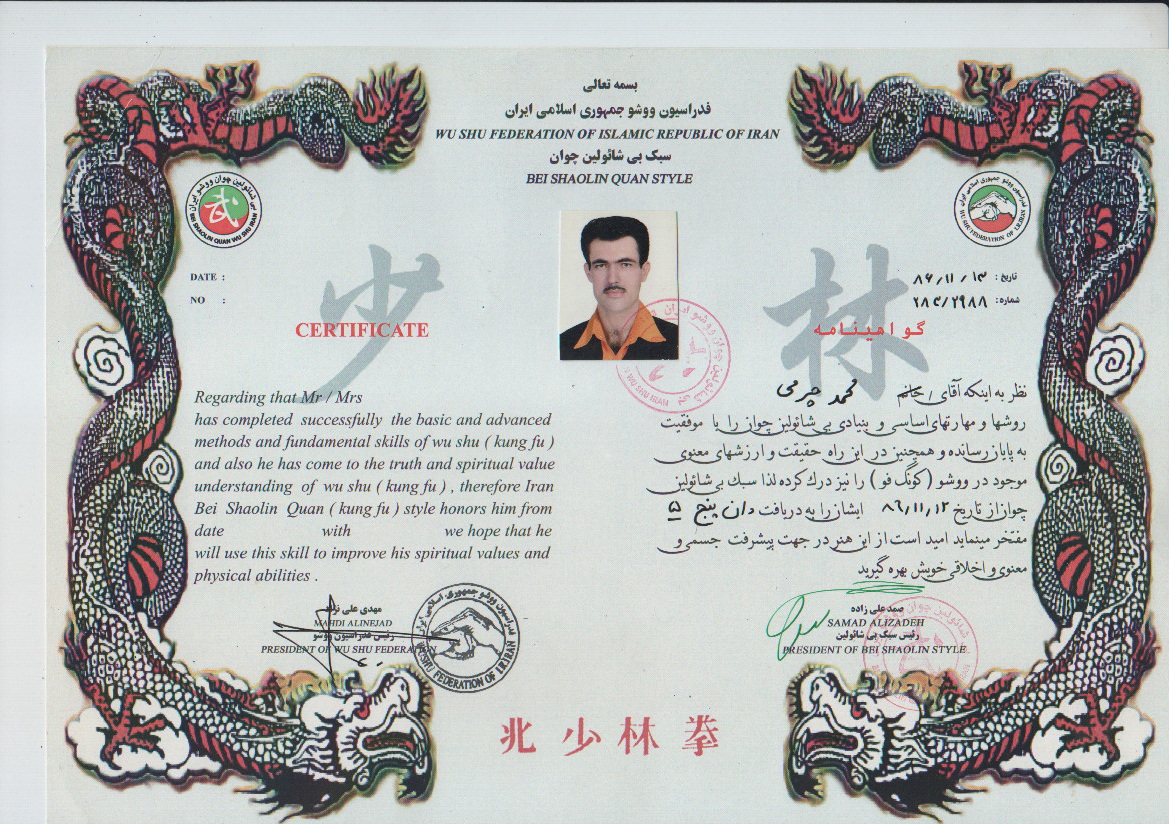 بسمه تعالی
فدراسیون ووشو جمهوری اسلامی ایران
WU SHU FEDERATION OF ISLAMIC REPUBLIC OF IRAN
سبک بی شائولین چوان
BEI SHAOLIN QUAN STYLE
DATE :
NO :
少
CERTIFICATE
Regarding that Mr / Mrs
has completed successfully the basic and advanced
methods and fundamental skills of wu shu ( kung fu )
and also he has come to the truth and spiritual value
understanding of wu shu ( kung fu ) , therefore Iran
Bei Shaolin Quan ( kung fu ) style honors him from
date with we hope that he
will use this skill to improve his spiritual values and
physical abilities .
تاریخ : ۸۶/۱۱/۱۳
شماره: ۲۸۴/۲۹۸۸
林
گواهینامه
نظر به اینکه آقای / خانم محمد چرمی
روشها و مهارتهای اساسی و بنیادی بی شائولین چوان را با موفقیت
به پایان رسانده و همچنین در این راه حقیقت و ارزشهای معنوی
موجود در ووشو (کونگ فو) را نیز درك کرده لذا سبك بی شائولین
چوان از تاریخ ۸۶/۱۱/۱۲ ایشان را به دریافت دان پنج ۵
مفتخر مینماید امید است از این هنر در جهت پیشرفت جسمی و
معنوی و اخلاقی خویش بهره گیرید
مهدی علی نژاد
MAHDI ALINEJAD
رئیس فدراسیون ووشو
PRESIDENT OF WU SHU FEDERATION
WUSHU FEDERATION OF I.R.IRAN
صمد علی زاده
SAMAD ALIZADEH
رئیس سبک بی شائولین
PRESIDENT OF BEI SHAOLIN STYLE
北少林拳